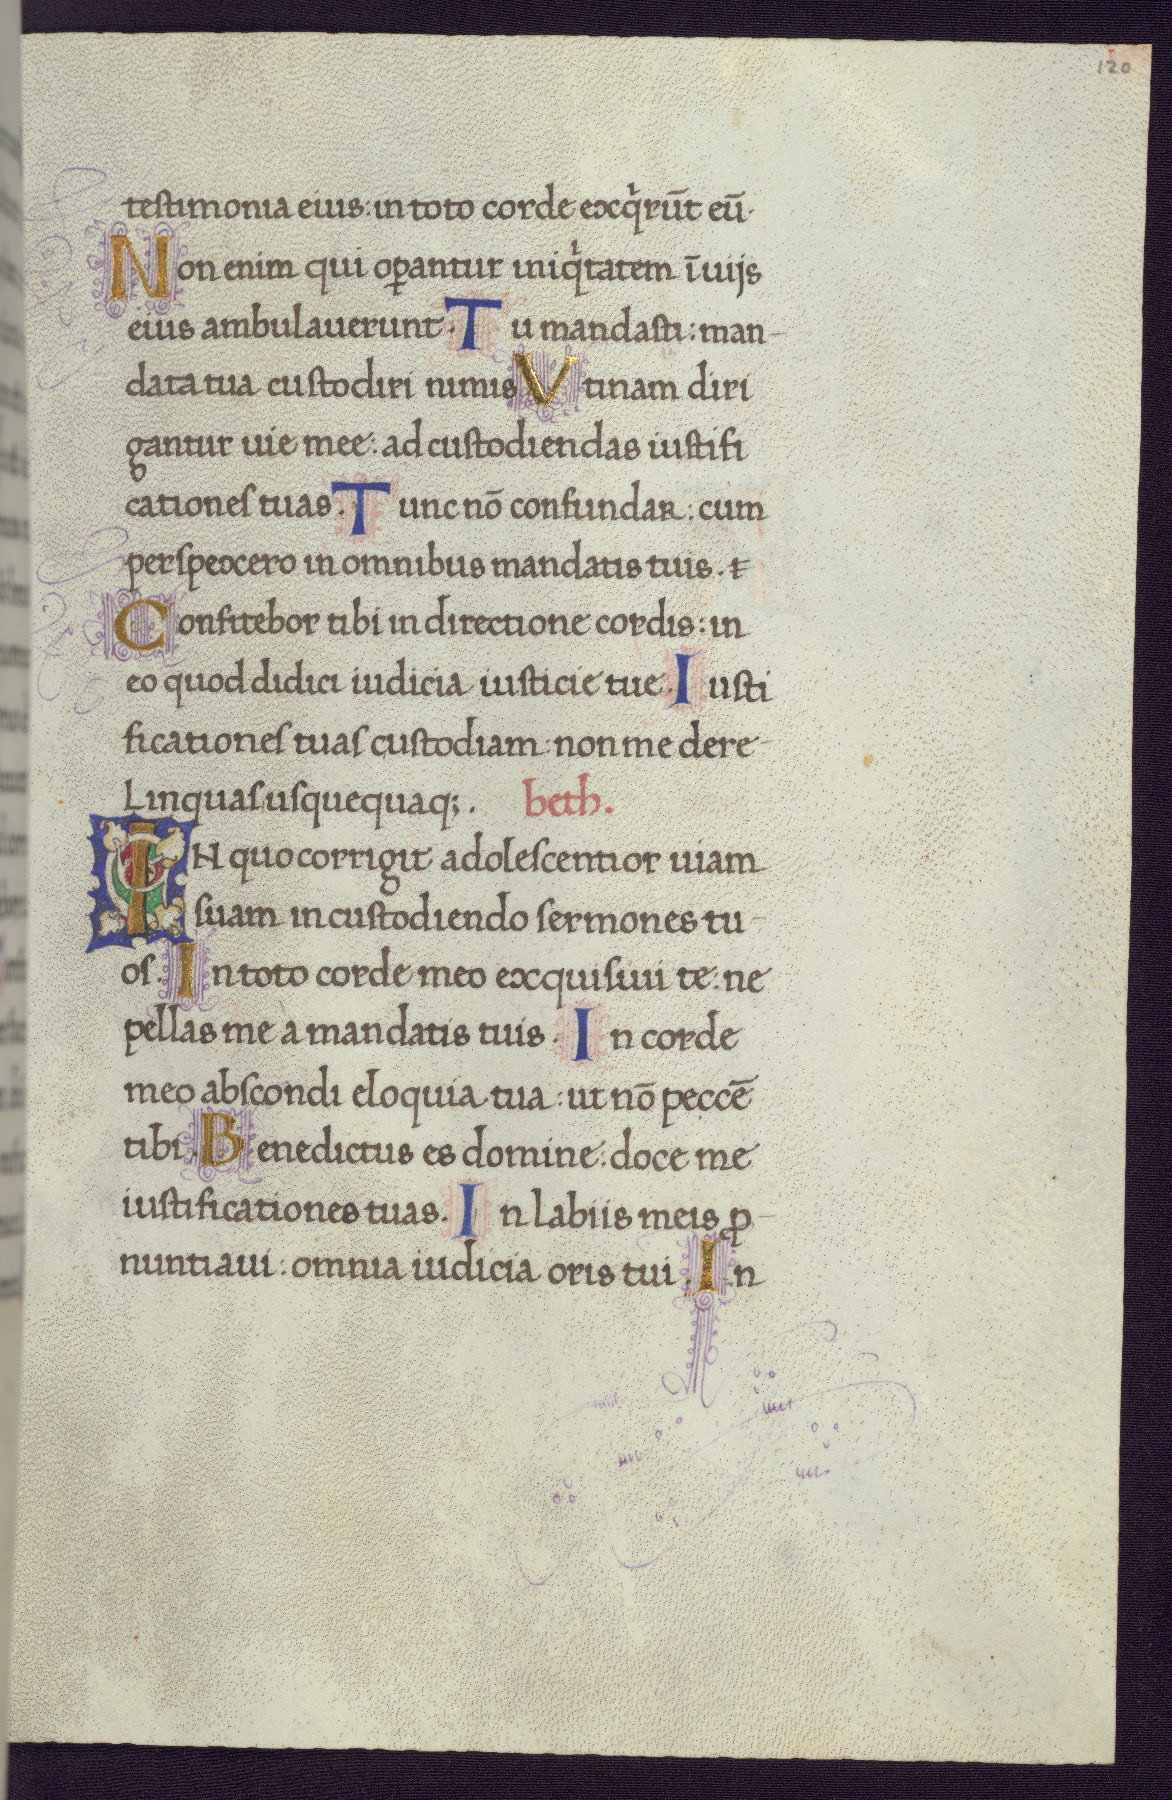 120
testimonia eius: in toto corde exq̍rūt eū.
Non enim qui oꝑantur iniq̍tatem ī uijs
eius ambulauerunt. Tu mandasti: man-
data tua custodiri nimis Vtinam diri
gantur uie mee: ad custodiendas iustifi
cationes tuas. Tunc nō confundar: cum
perspexero in omnibus mandatis tuis.
Confitebor tibi in directione cordis: in
eo quod didici iudicia iusticie tue. Iusti
ficationes tuas custodiam: non me dere-
Linquas usquequaq;. beth.
IN quo corrigit adolescentior uiam
suam in custodiendo sermones tu-
os. In toto corde meo exquisiui te: ne
pellas me a mandatis tuis. In corde
meo abscondi eloquia tua: ut nō peccē
tibi. Benedictus es domine: doce me
iustificationes tuas. In labiis meis ꝓ-
nuntiaui: omnia iudicia oris tui. In